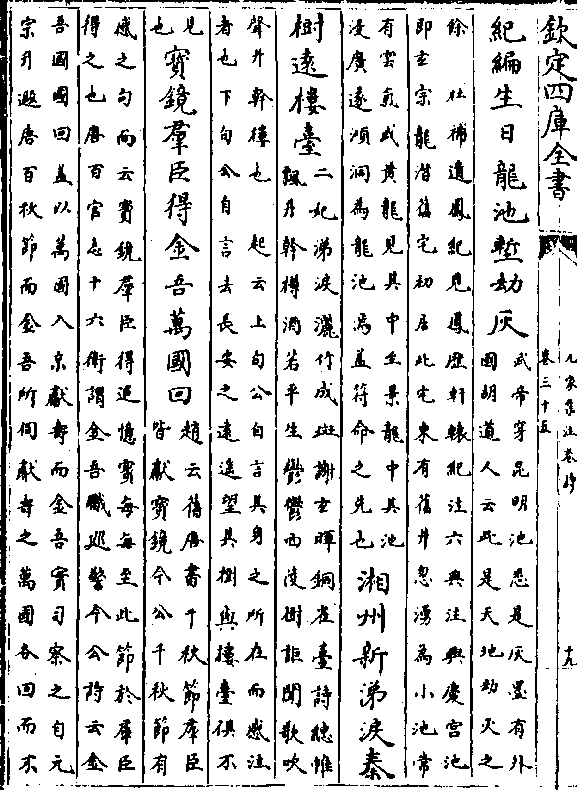 欽定四庫全書
九家集注杜詩
卷三十五
十九
紀編生日龍池塹劫灰
武帝穿昆明池悉是灰墨有外
國胡道人云此是天地劫灰之
餘 杜補遺鳳紀見鳳歴軒轅紀注六典注興慶宫池
即玄宗龍潛舊宅初居此宅東有舊井忽湧為小池常
有雲氣或黄龍見其中至景龍中其池
浸廣遂澒洞為龍池焉蓋符命之先也
湘州新涕淚秦
樹遠樓臺
二妃涕淚灑竹成斑謝玄暉銅雀臺詩繐帷
飄井幹樽酒若平生鬱鬱西陵樹詎聞歌吹
聲井幹樓也 起云上句公自言其身之所在而感注
者也下句公自言去長安之遠遥望其樹與樓臺俱不
見
也
寳鏡羣臣得金吾萬國回
趙云舊唐書千秋節羣臣
皆獻寳鏡今公千秋節有
感之句而云寳鏡羣臣得追憶實每每至此節於羣臣
得之也唐百官志十六衛謂金吾職廵警今公詩云金
吾國國回蓋以萬國入京獻壽而金吾實司察之自元
宗升遐唐百秋節而金吾所伺獻壽之萬國各回而不